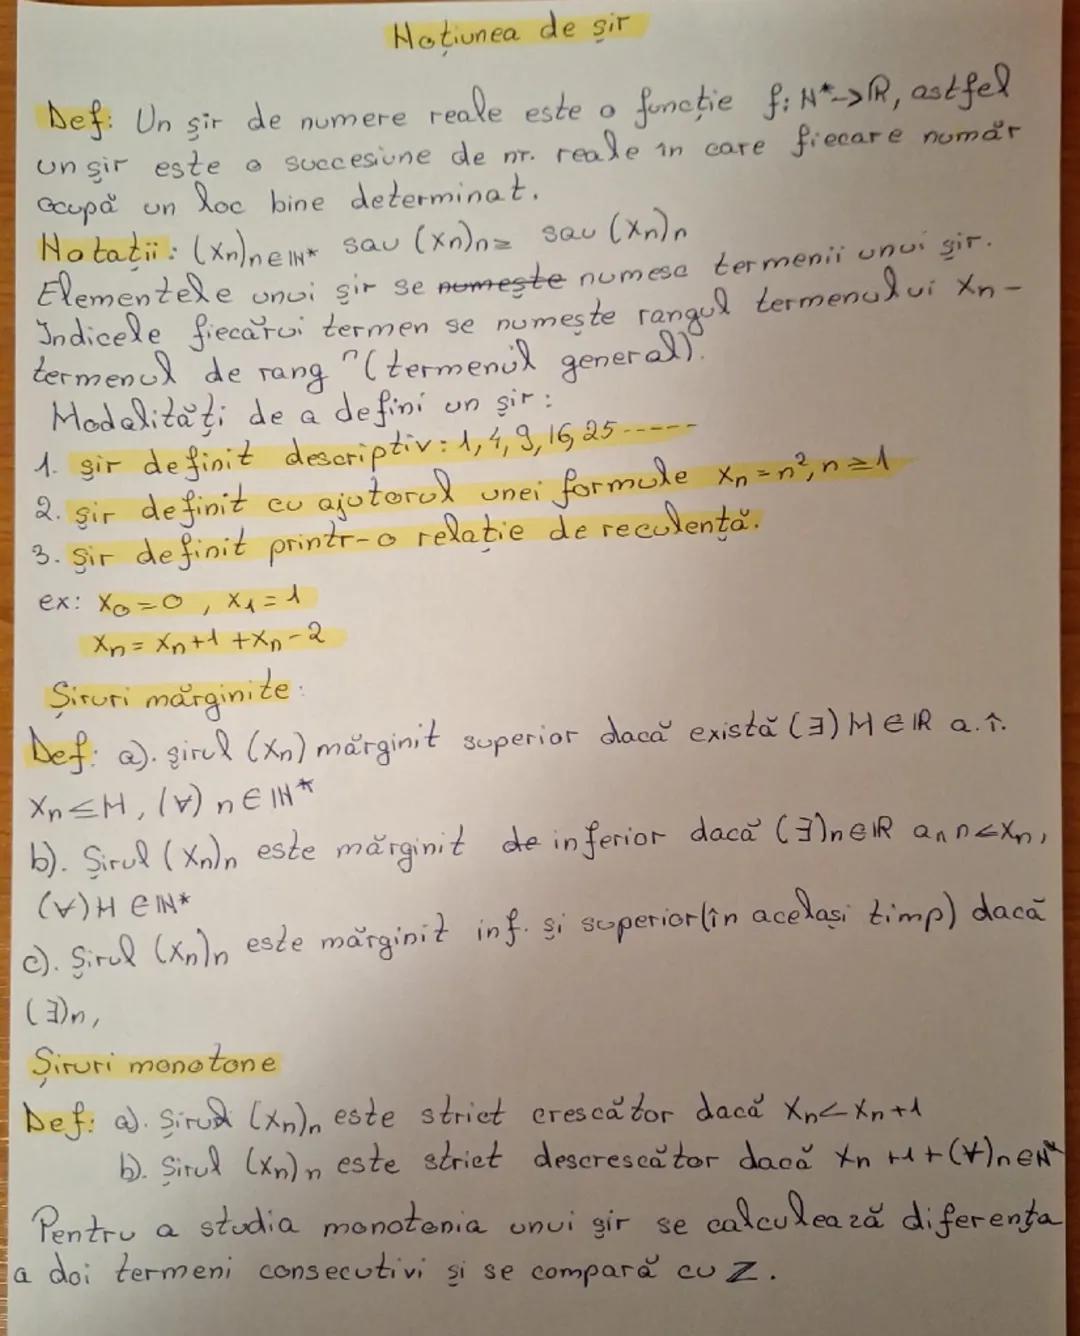 Noțiunea de șir
Def: Un șir de numere reale este o funcție f: N*->R, astfel
un șir este o succesiune de nr. reale în care fiecare număr
ocupă un loc bine determinat.
Notații: (xn)n∈IN* sau (xn)n≥ sau (xn)n
Elementele unui șir se numește numesc termenii unui șir.
Indicele fiecărui termen se numește rangul termenului xn-
termenul de rang n (termenul general).
Modalități de a defini un șir:
1. șir definit descriptiv: 1, 4, 9, 16, 25-----
2. șir definit cu ajutorul unei formule xn = n², n≥1
3. Șir definit printr-o relație de reculență.
ex: x0=0, x1=1
xn = xn+1 +xn-2
Șiruri mărginite:
Def: a). șirul (xn) mărginit superior dacă există (∃) M∈IR a.î.
xn≤M, (∀) n∈IN*
b). Șirul (xn)n este mărginit de inferior dacă (∃)n∈IR an n<xn,
(∀)M∈IN*
c). Șirul (xn)n este mărginit inf. și superior(în același timp) dacă
(∃)n,
Șiruri monotone
Def: a). Șirul (xn)n este strict crescător dacă xn<xn+1
b). Șirul (xn)n este strict descrescător dacă xn +1+(∀)n∈N*
Pentru a studia monotonia unui șir se calculează diferența
a doi termeni consecutivi și se compară cu Z.